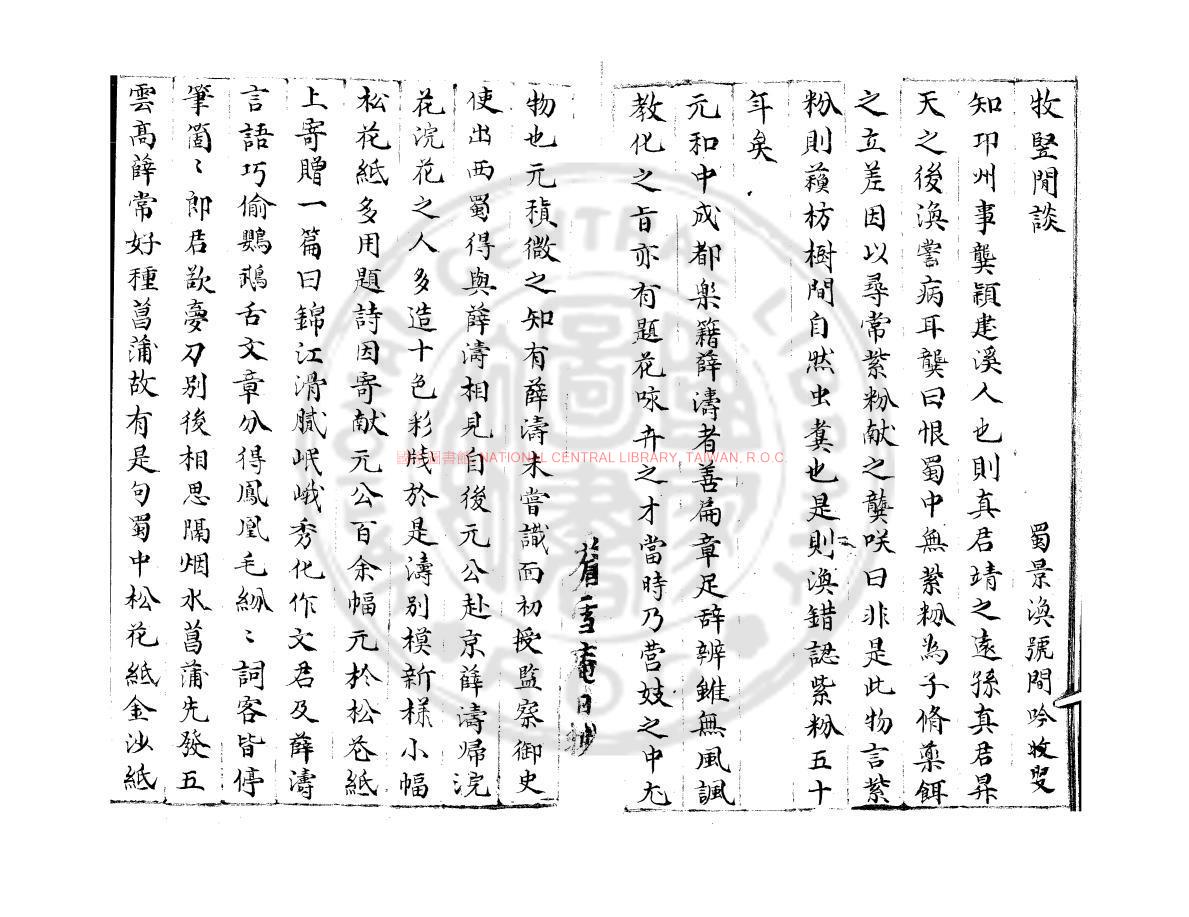 牧豎閒談　蜀景渙號閒吟牧叟
知邛州事龔穎建溪人也則真君靖之遠孫真君昇
天之後渙嘗病耳龔曰恨蜀中無紫粉為子脩藥餌
之立差因以尋常紫粉献之龔咲曰非是此物言紫
粉則蘱枋樹間自然虫糞也是則渙錯認紫粉五十
年矣
元和中成都樂籍薛濤者善扁章足辞辨雖無風諷
教化之旨亦有題花咏卉之才當時乃营妓之中尤
物也元稹微之知有薛濤未嘗識面初授監察御史
使出西蜀得與薛濤相見自後元公赴京薛濤歸浣
花浣花之人多造十色彩牋於是濤別模新様小幅
松花紙多用題詩因寄献元公百余幅元於松花紙
上寄贈一篇曰錦江滑膩岷峨秀化作文君及薛濤
言語巧偷鸚鵡舌文章分得鳳凰毛紛〻詞客皆停
筆箇〻郎君欲夢刀別後相思隔烟水菖蒲先發五
雲高薛常好種菖蒲故有是句蜀中松花紙金沙紙
國家圖書館 NATIONAL CENTRAL LIBRARY, TAIWAN, R.O.C.